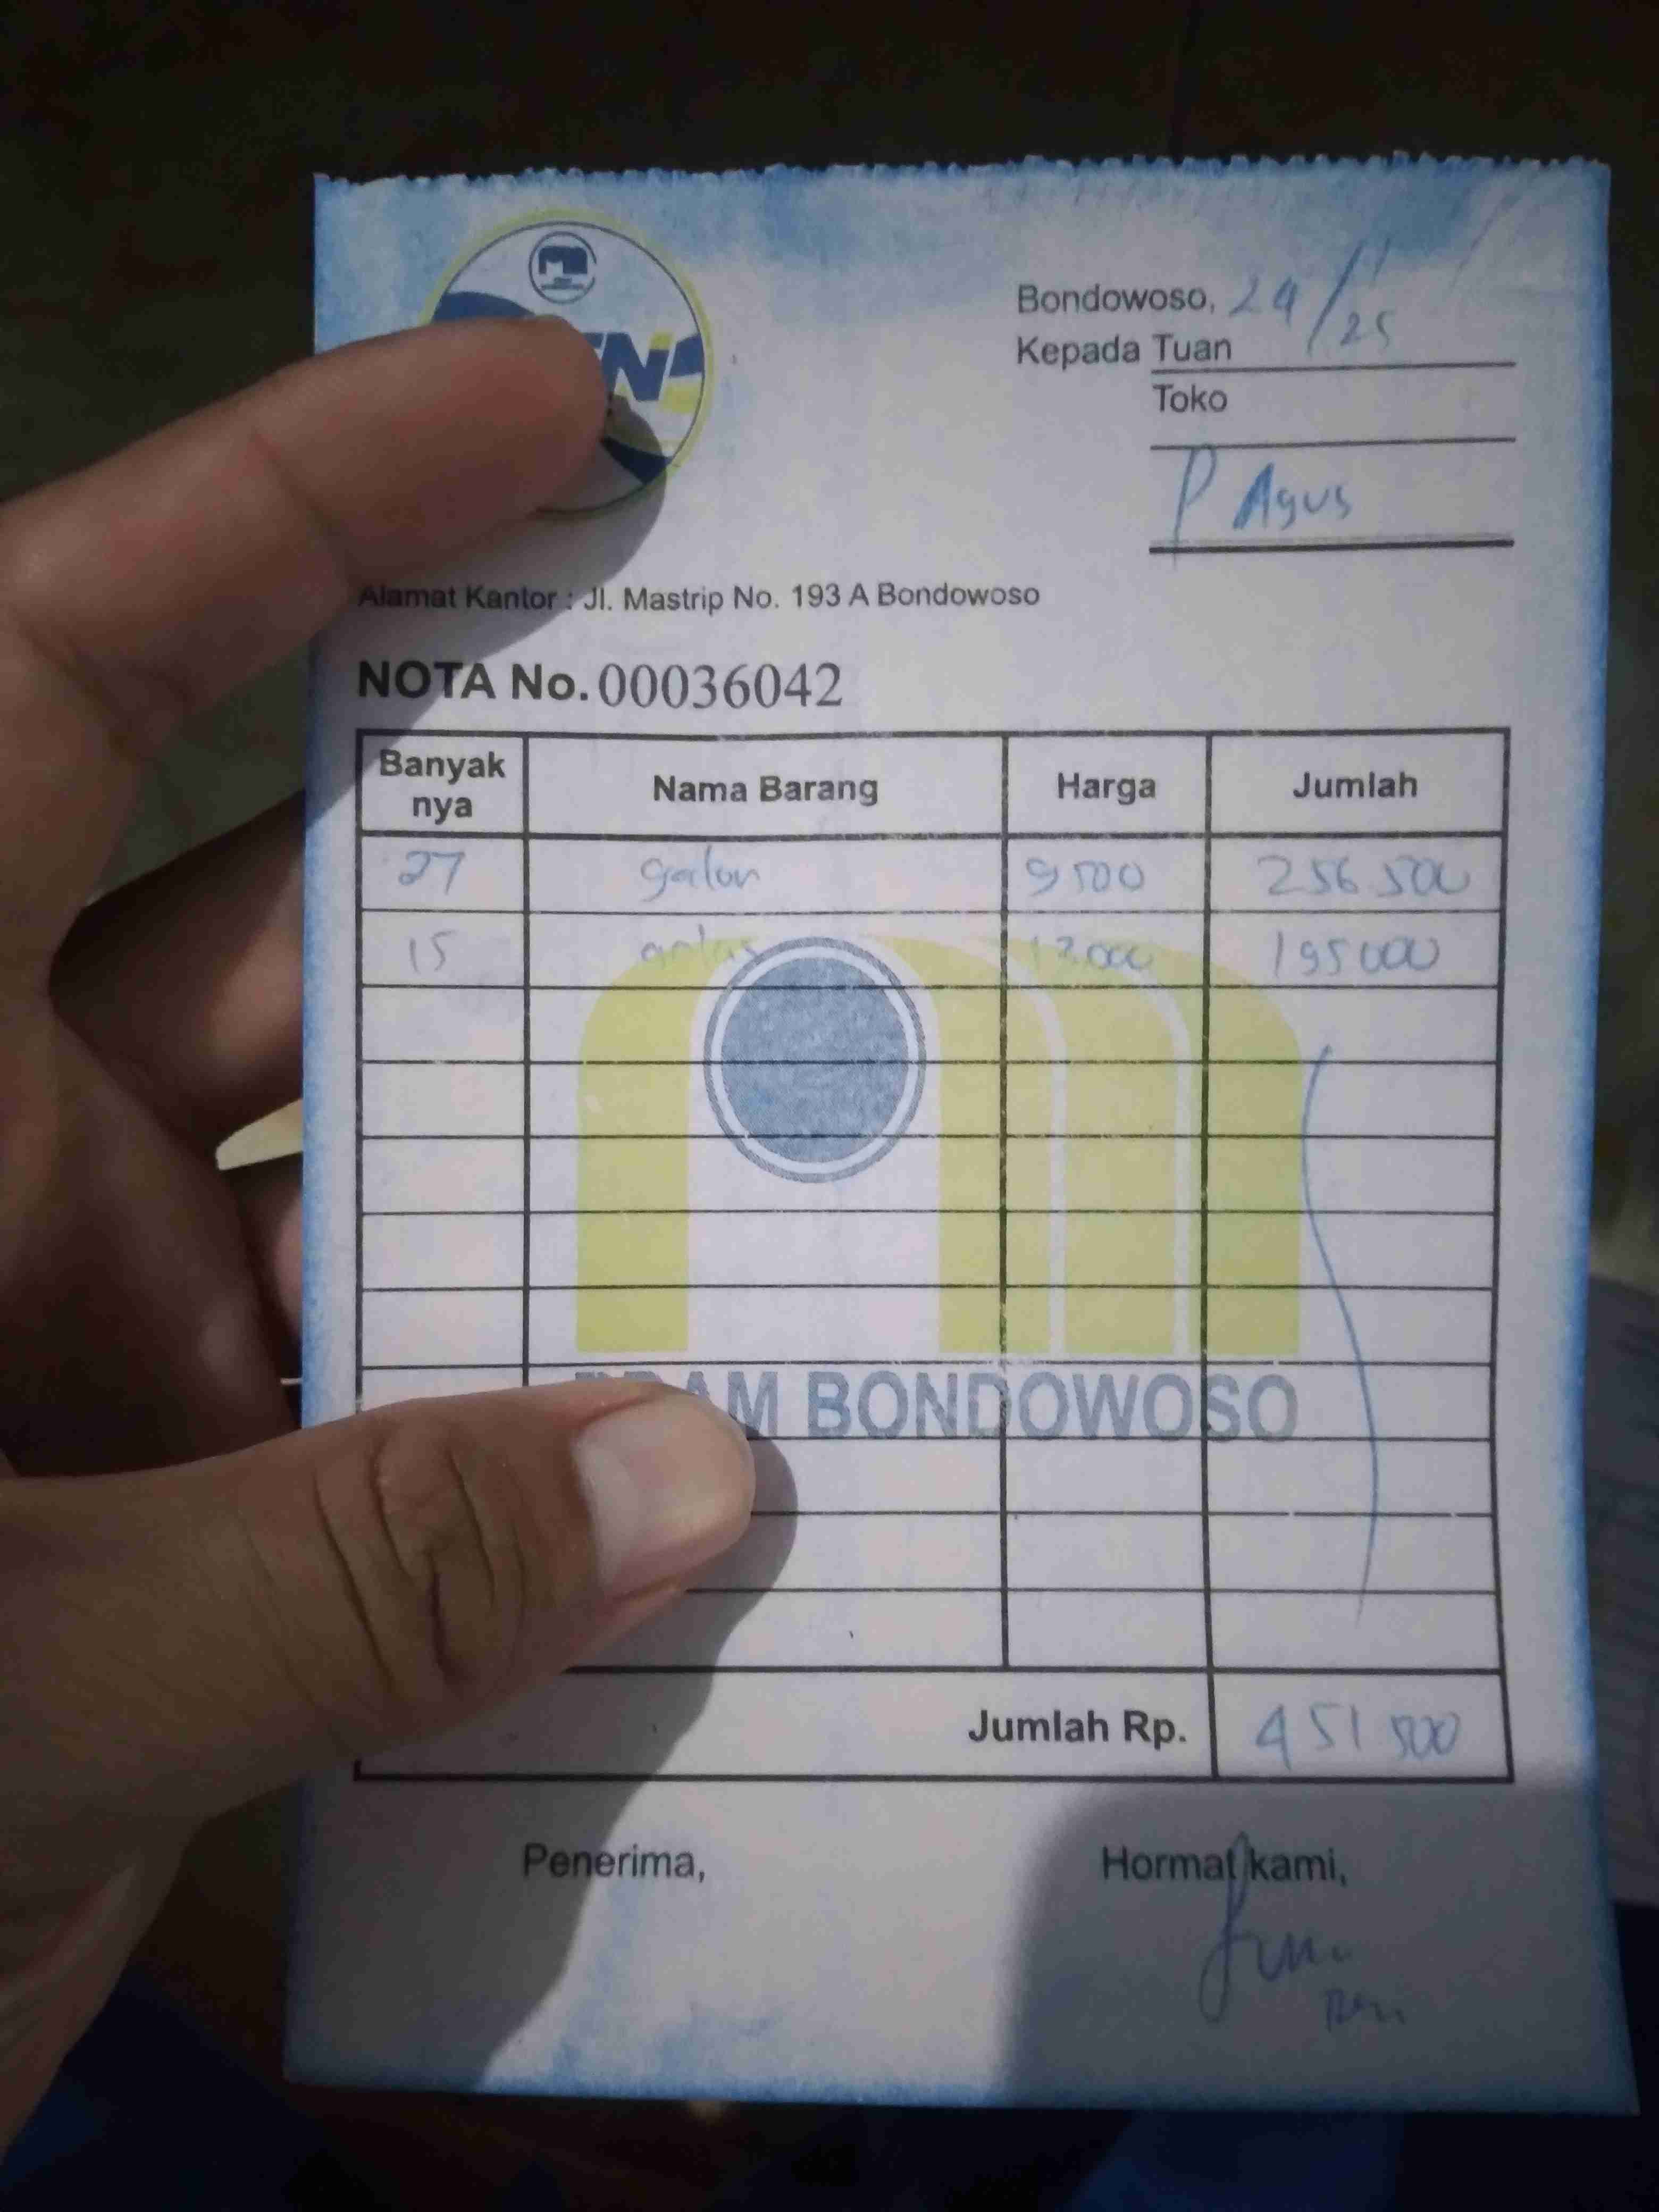 Bondowoso, 24/11/25
Kepada Tuan
Toko
P Agus
Alamat Kantor : Jl. Mastrip No. 193 A Bondowoso
NOTA No. 00036042
Banyak nya Nama Barang Harga Jumlah
27 galon 9500 256.500
15 gelas 13.000 195000
BONDOWOSO
Jumlah Rp. 451 500
Penerima, Hormat kami,